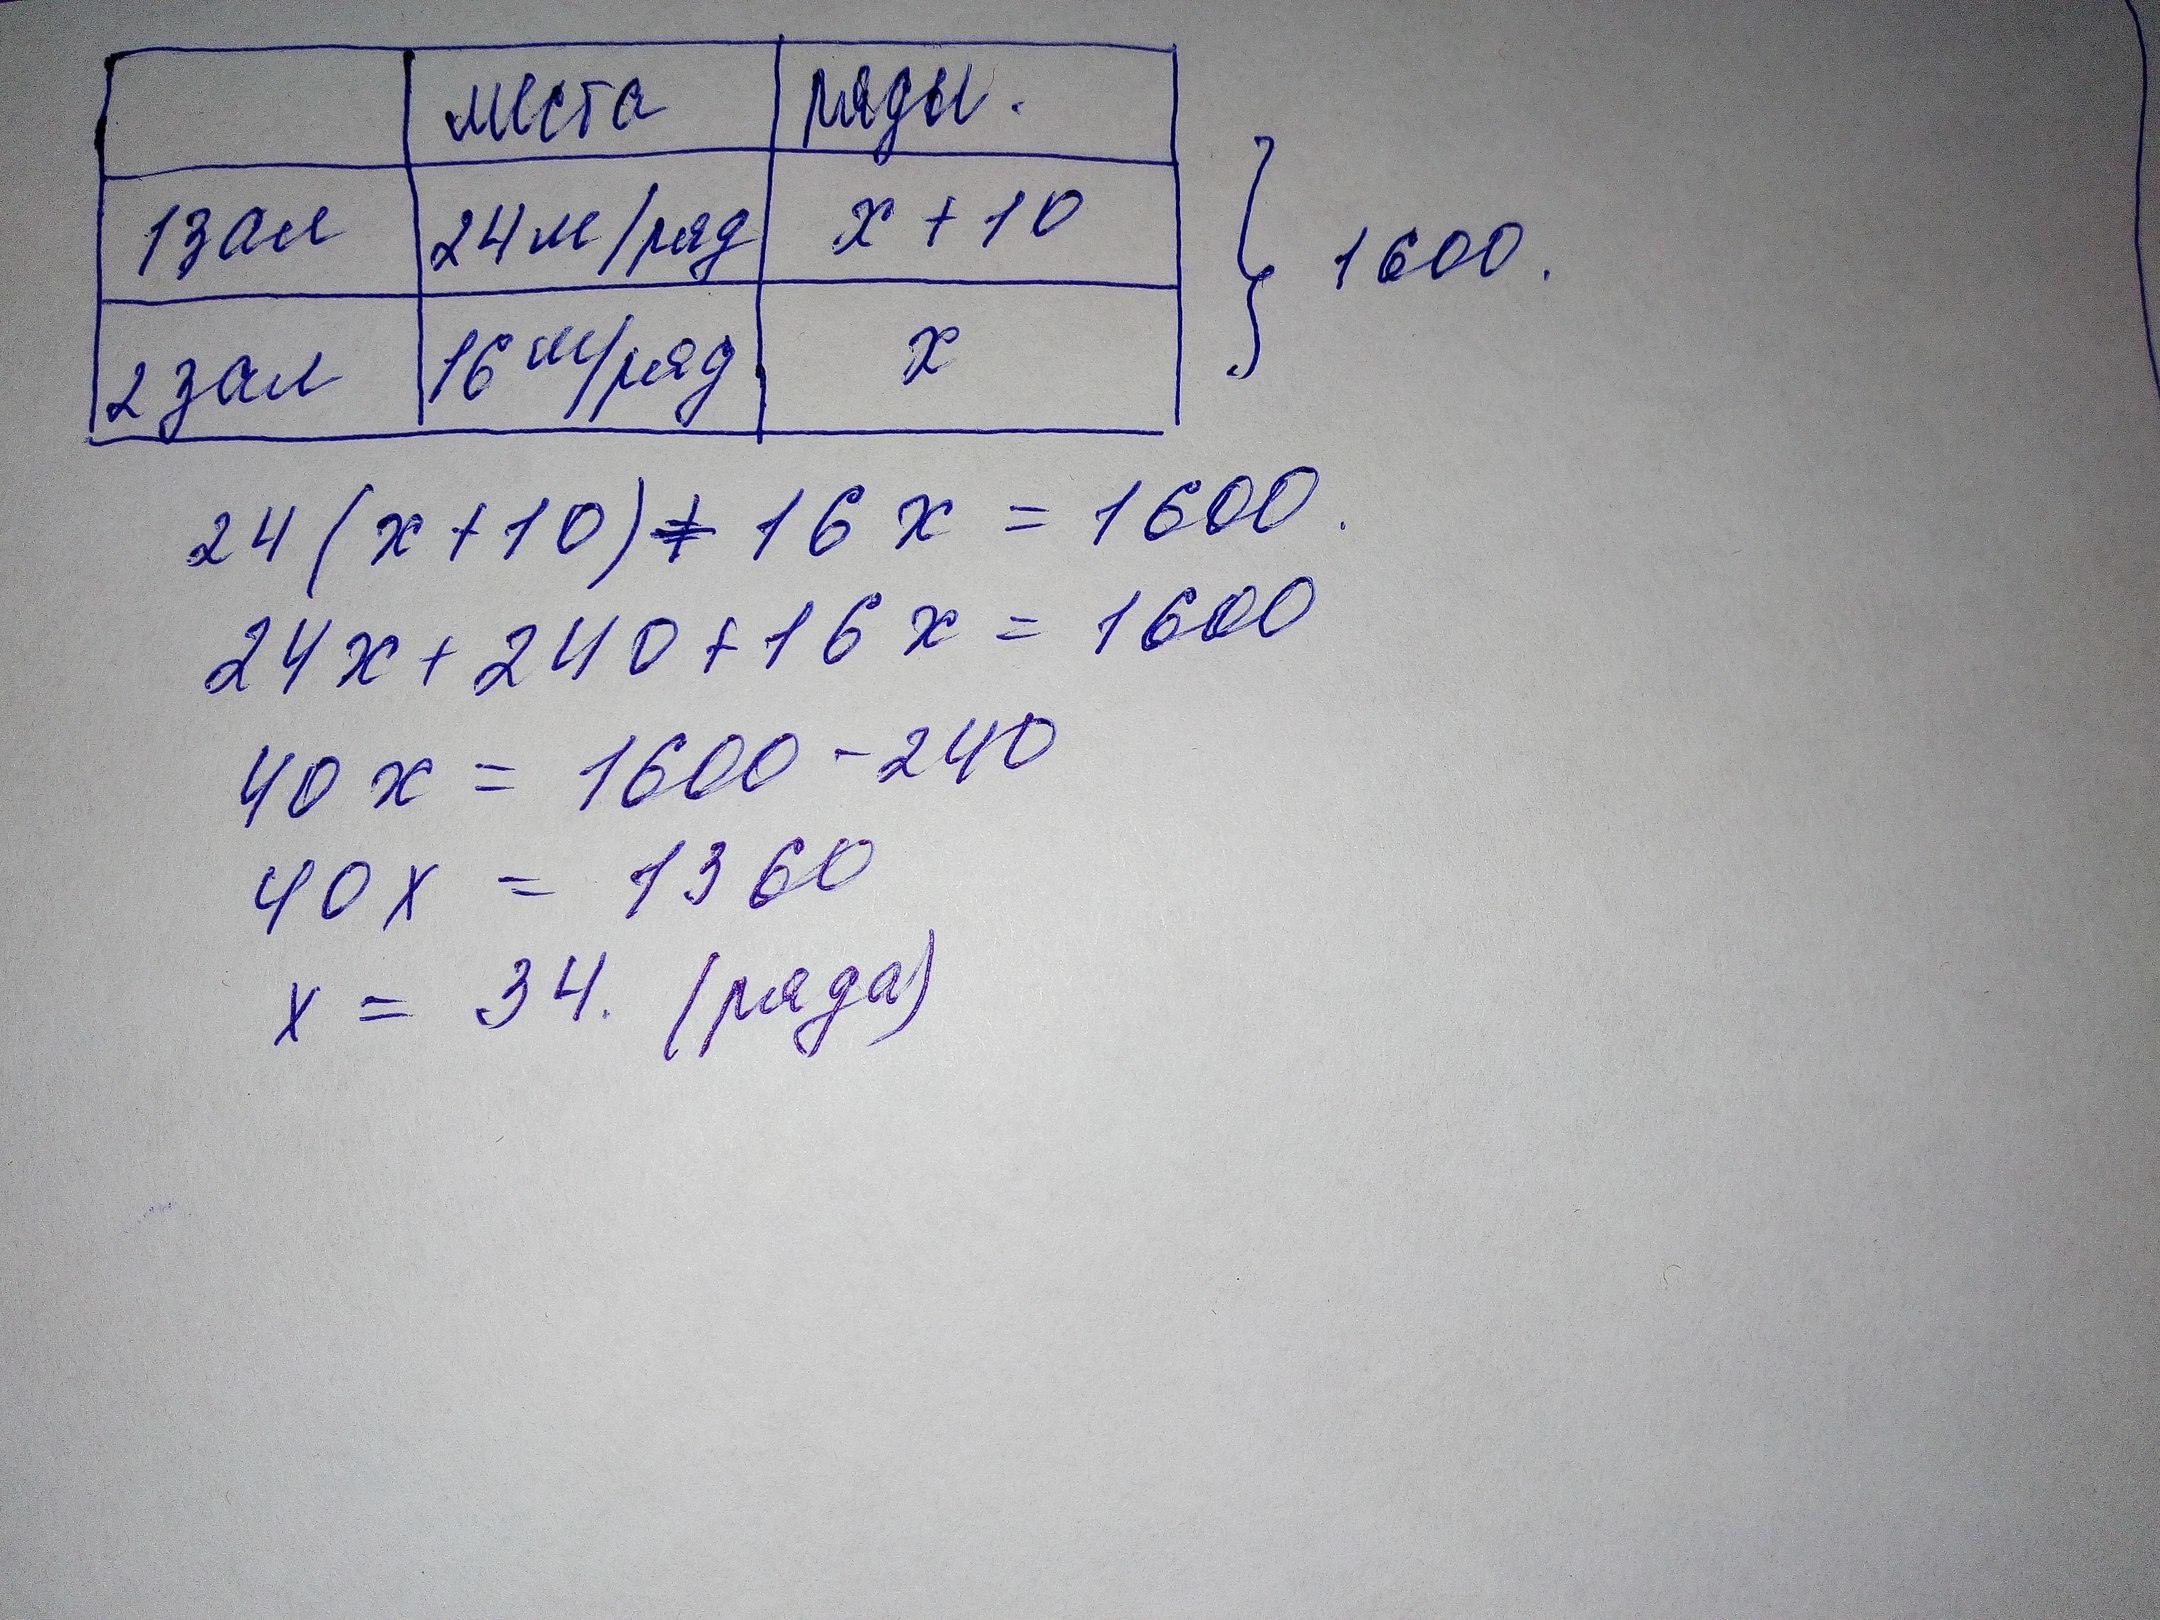 места ряды.
1 зал 24 м/ряд x + 10
2 зал 16 м/ряд x
} 1600.
24 (x + 10) + 16 x = 1600.
24x + 240 + 16 x = 1600
40 x = 1600 - 240
40x = 1360
x = 34. (ряда)